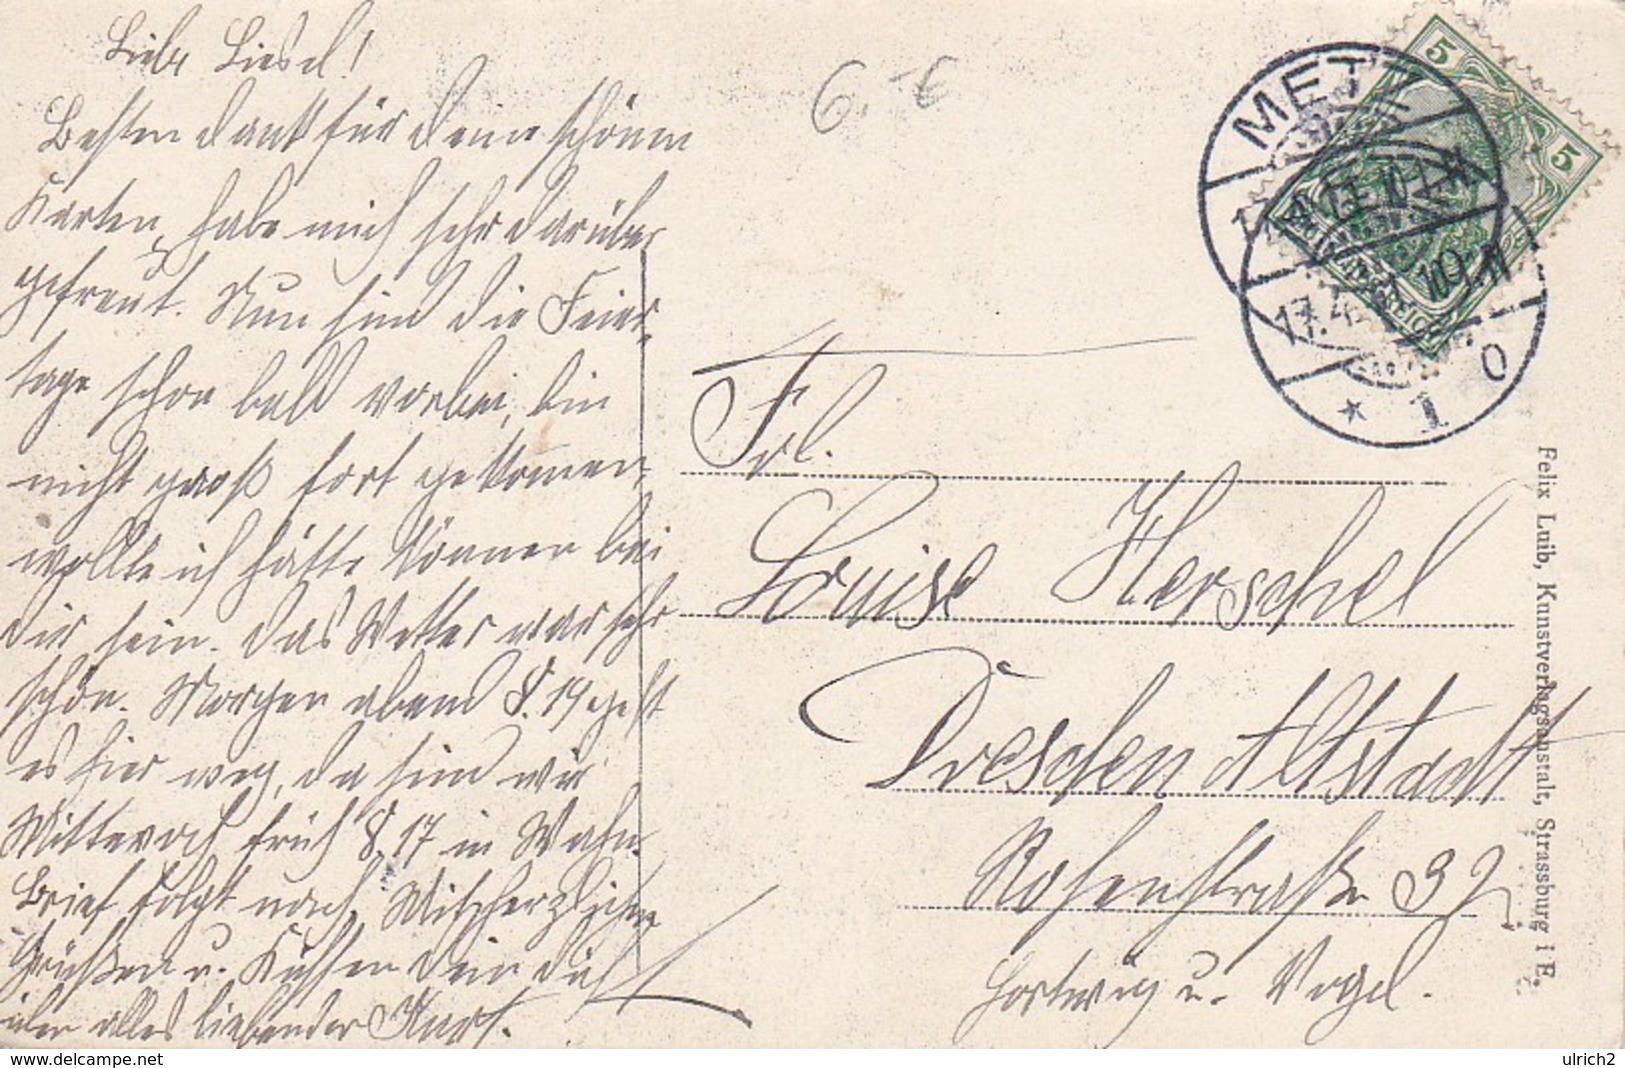 Liebe Liesel!
Besten Dank für Deine schönen
Karten, habe mich sehr darüber
gefreut. Nun sind die Feier-
tage schon bald vorbei, bin
nicht groß fort gekommen,
wollte ich hätte können bei
dir sein. Das Wetter war sehr
schön. Morgen abend 8.19 geht
es hier weg, da sind wir
Mittwoch früh 8.17 in Wahn.
Brief folgt noch. Mit herzlichen
Grüßen u. Küssen Dein dich
über alles liebender Kurt.
6.-€
METZ
17.4.11.10-11
* 1 o
5
5
Frl.
Louise Herschel
Dresden Altstadt
Rosenstraße 32
Hartwig u. Vogel.
Felix Luib, Kunstverlagsanstalt, Strassburg i E.
www.delcampe.net
ulrich2